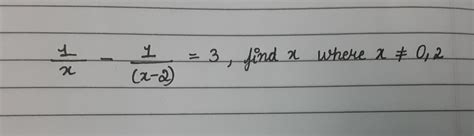 1/x - 1/(x-2) = 3, find x where x ≠ 0, 2